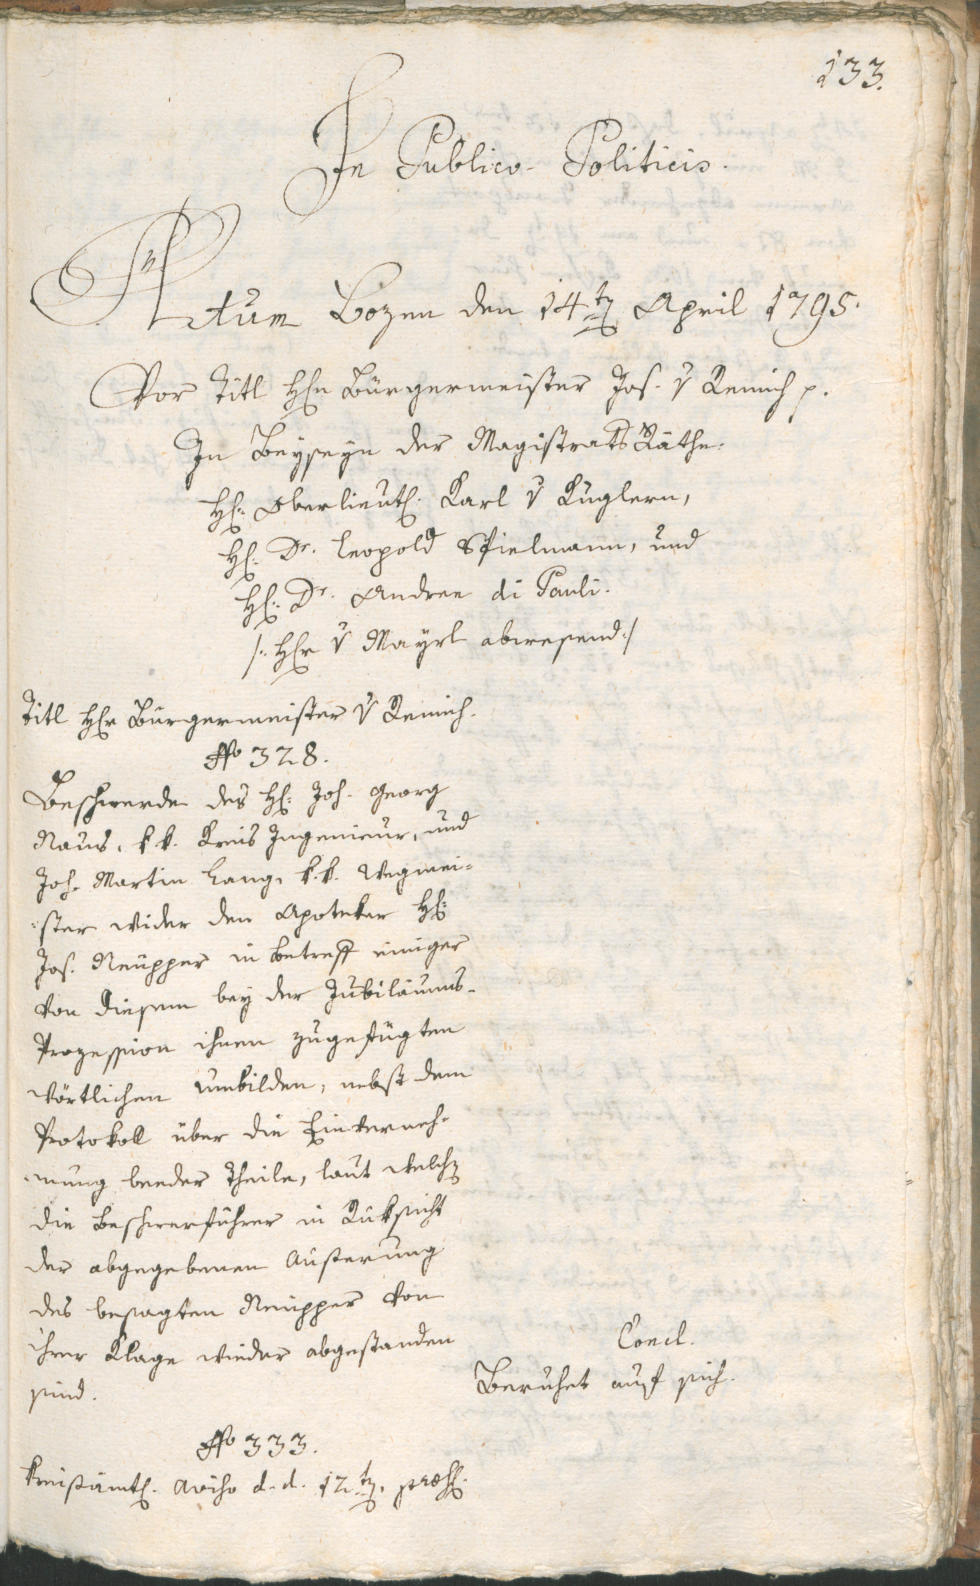 133.
In Publico-Politicis.
Actum Bozen den 14t April 1795.
Vor Titl Hrn Bürgermeister Jos. v Remich p.
In Beyseyn der Magistrats Räthe.
H: Oberlieut. Karl v Kuglern,
H: Dr. Leopold Spielmann, und
H: Dr. Andree di Pauli.
/: Hr v Mayrl abwesend :/
Titl Hr Bürgermeister v Remich.
No 328.
Beschwerde des H: Joh. Georg
k. k. Kreis Ingenieur, und
Joh. Martin Lang, k. k. Wegmei=
=ster wider den Apoteker H:
Jos. Neupper in betreff einiger
von diesem bey der Jubiläums-
Prozession ihnen zugefügten
wörtlichen Unbilden, nebst dem
Protokoll über die Einverneh=
=mung beeder Theile, laut welch
die Beschwerführer in Rüksicht
der abgegebenen Äusserung
des besagten Neupper von
ihrer Klage wieder abgestanden
sind.
Concl.
Beruhet auf sich.
No 333.
Kreisämtl. d. d. 12t